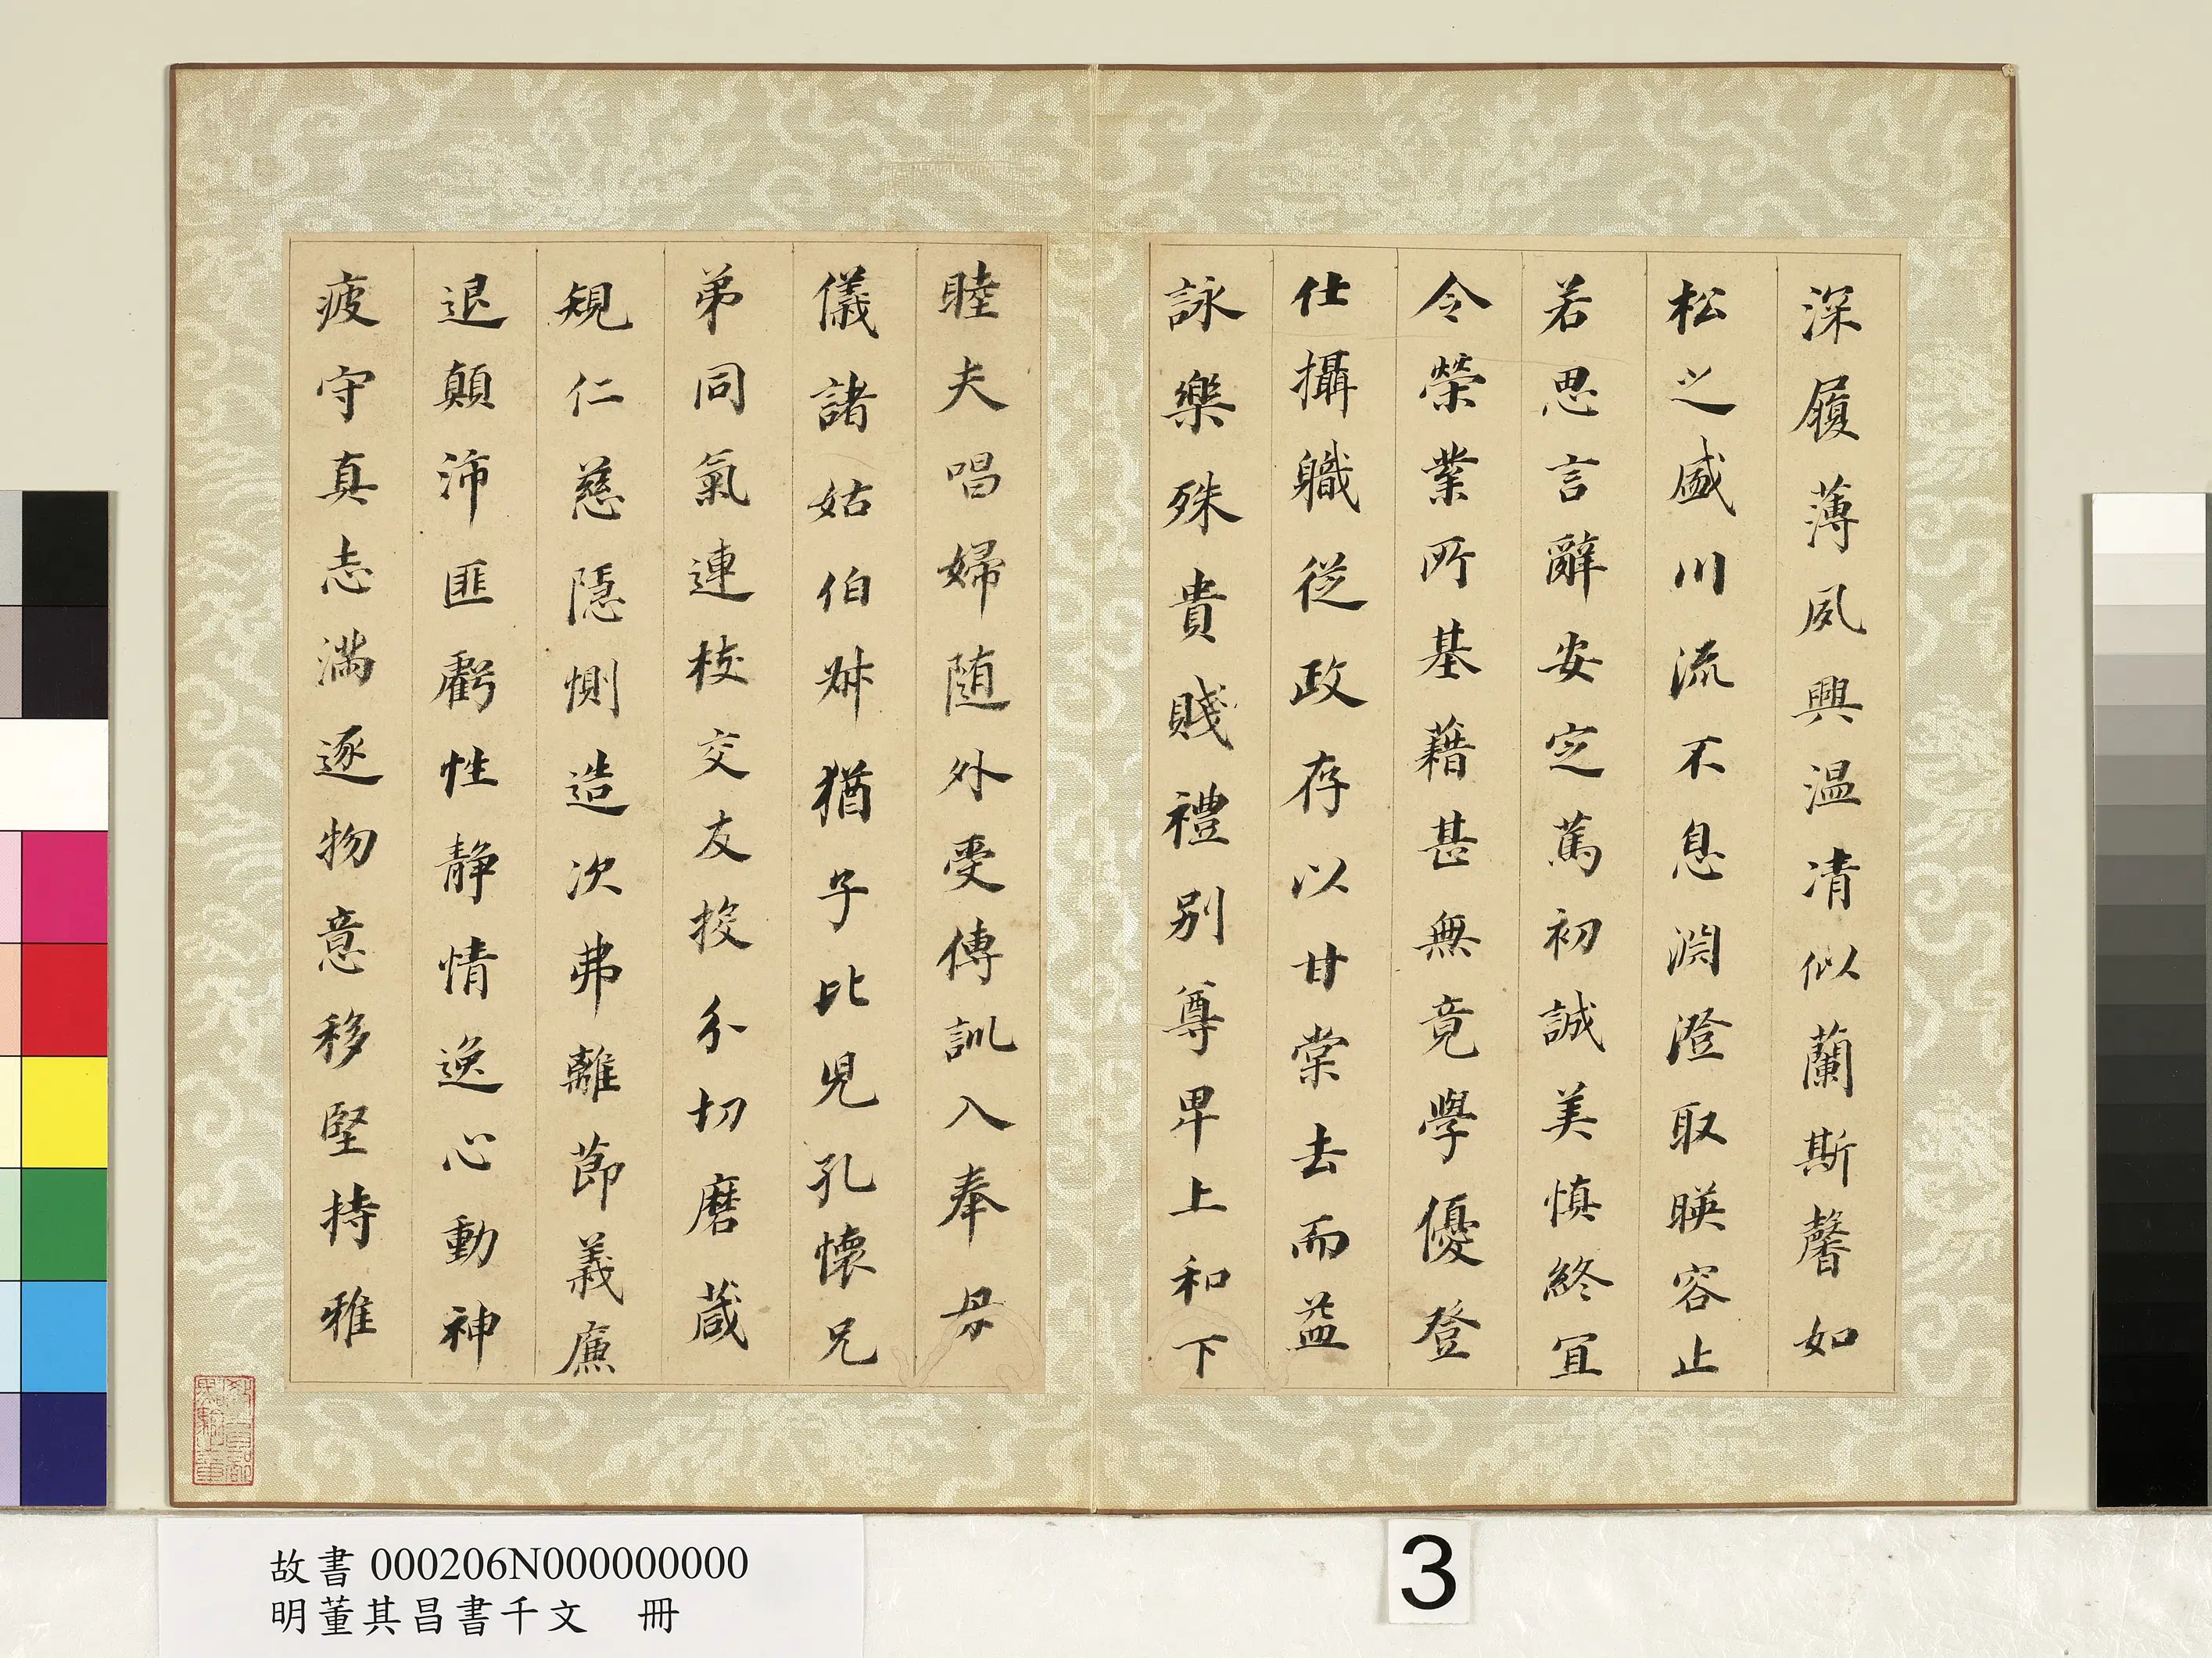 深履薄夙興温凊似蘭斯馨如
松之盛川流不息淵澄取暎容止
若思言辭安定篤初誠美慎終宜
令榮業所基藉甚無竟學優登
仕攝職從政存以甘棠去而益
詠樂殊貴賤禮別尊卑上和下
睦夫唱婦随外受傅訓入奉母
儀諸姑伯叔猶子比兒孔懷兄
弟同氣連枝交友投分切磨箴
規仁慈隱惻造次弗離節義廉
退顛沛匪虧性静情逸心動神
疲守真志滿逐物意移堅持雅
故書 000206N000000000
明董其昌書千文 冊
3